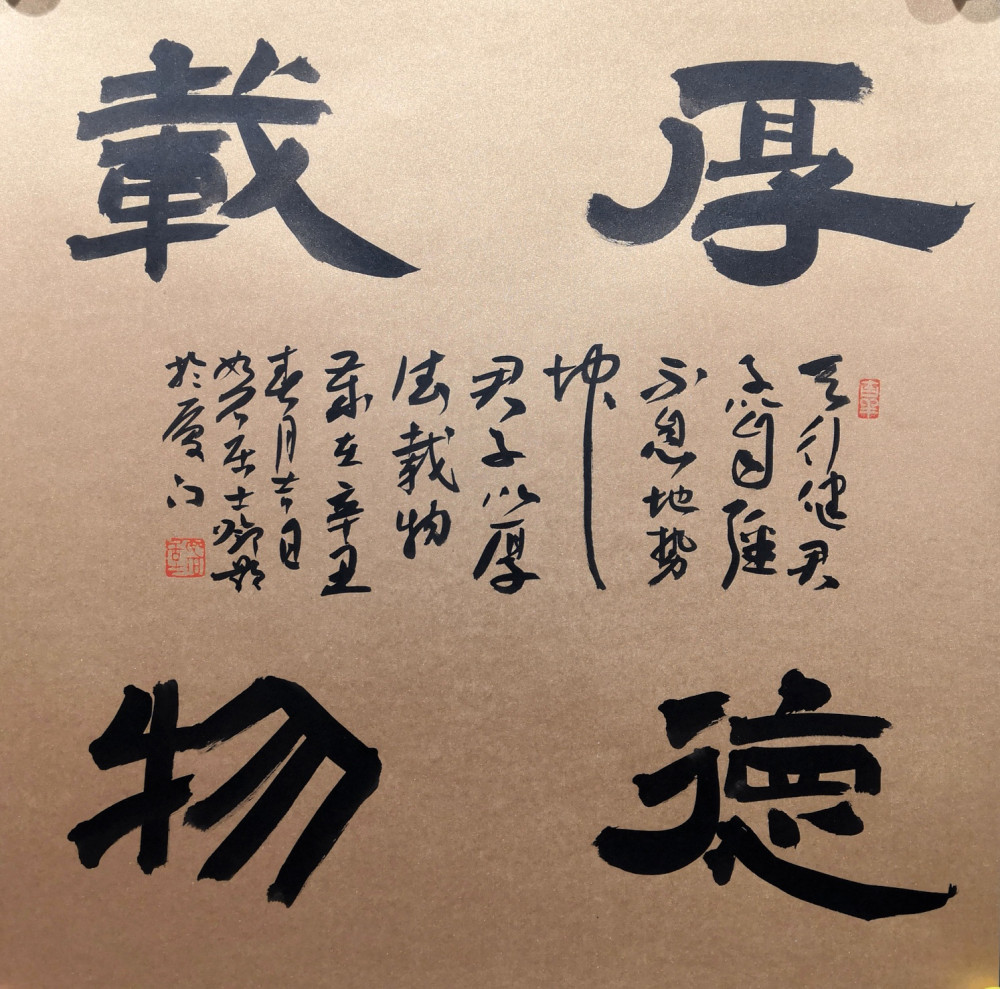 厚德
載物
天行健君
子以自强
不息地势
坤
君子以厚
德載物
歲在辛丑
春月吉日
居士鄧
於厦门